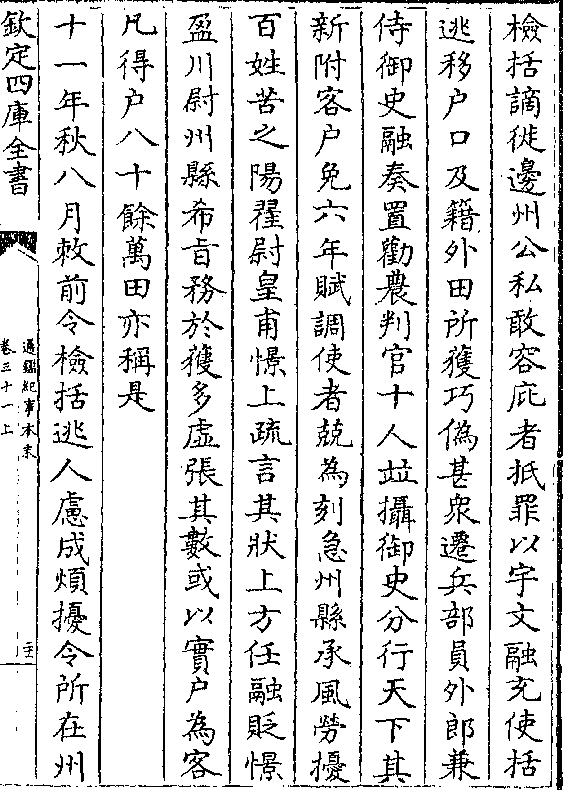 檢括謫徙邊州公私敢容庇者抵罪以宇文融充使括
逃移户口及籍外田所獲巧偽甚衆遷兵部員外郎兼
侍御史融奏置勸農判官十人並攝御史分行天下其
新附客户免六年賦調使者競為刻急州縣承風勞擾
百姓苦之陽翟尉皇甫憬上疏言其狀上方任融貶憬
盈川尉州縣希㫖務於獲多虛張其數或以實户為客
凡得户八十餘萬田亦稱是
十一年秋八月敕前令檢括逃人慮成煩擾令所在州
欽定四庫全書
通鑑紀事本末
卷三十一上